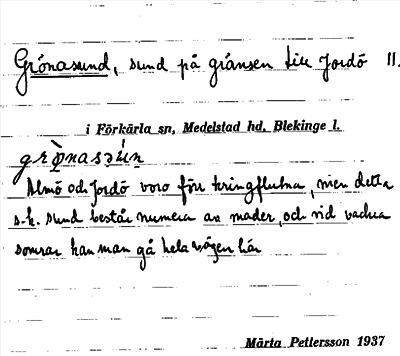 Grönasund, sund på gränsen till Jordö 11.
i Förkärla sn, Medelstad hd. Blekinge l.
grö̀nasún
Almö och Jordö voro förr kringflutna, men detta
s.k. sund består numera av mader, och vid vackra
somrar kan man gå hela vägen här
Märta Pettersson 1937